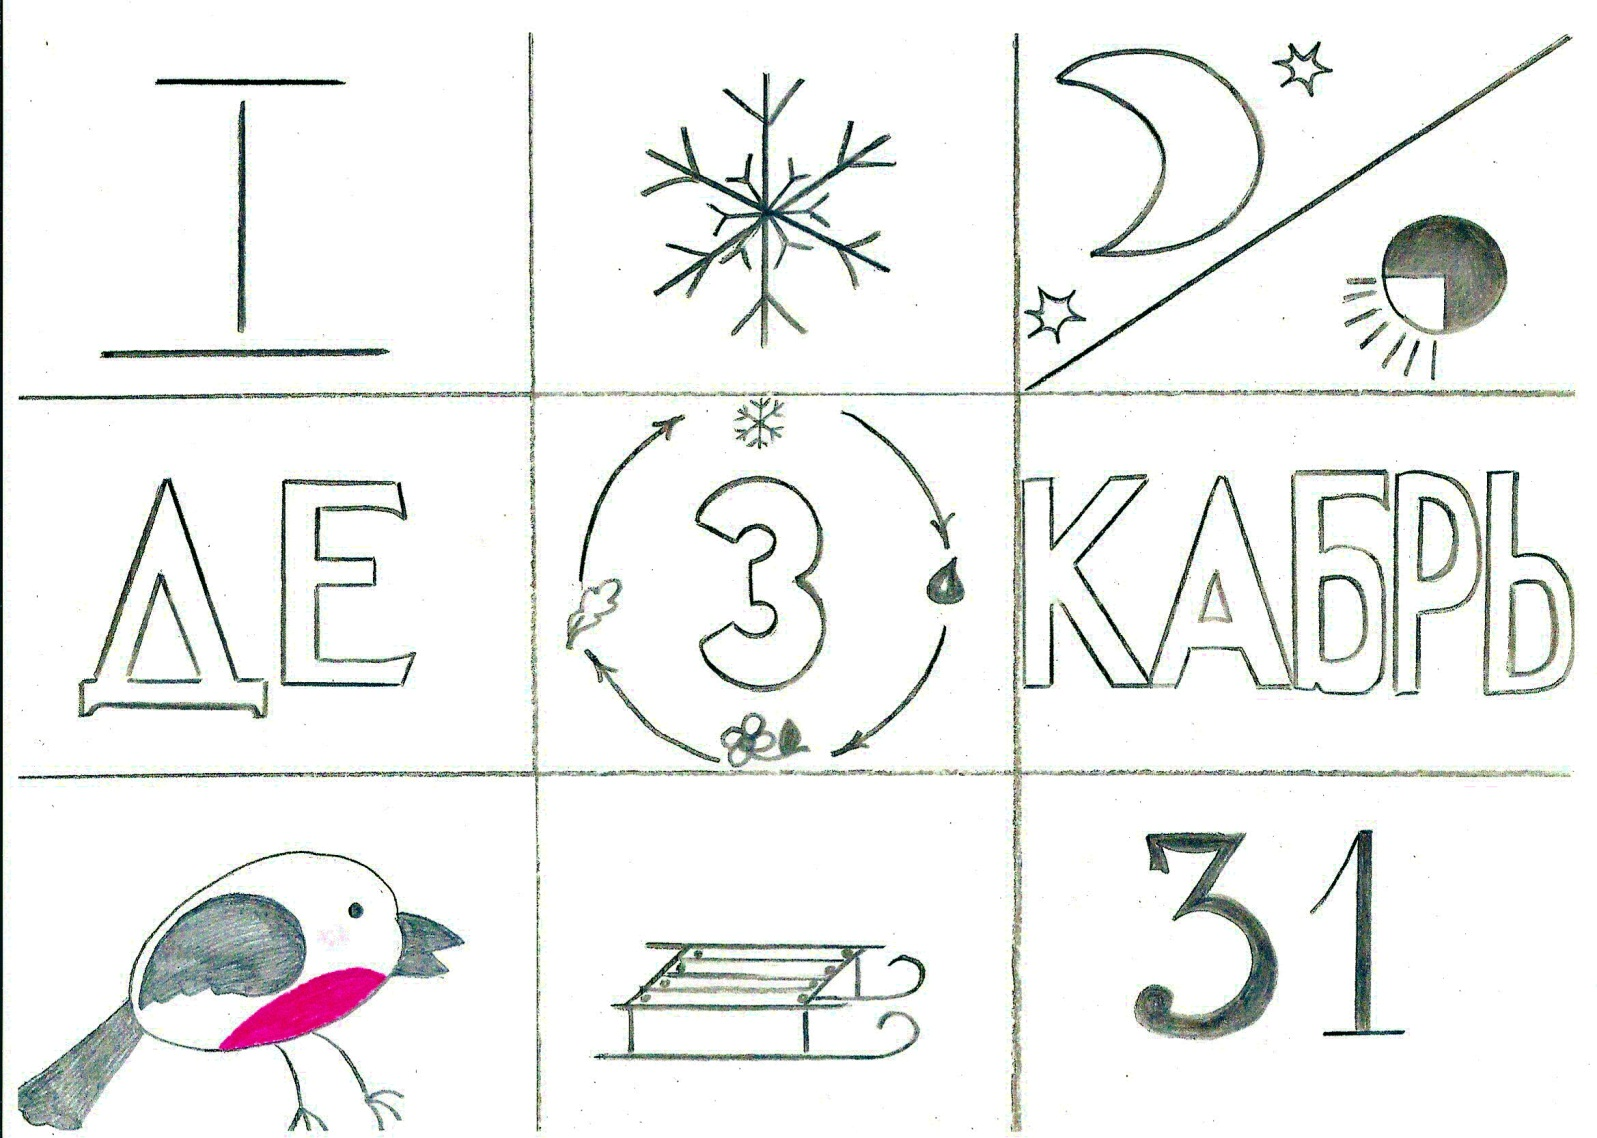 I
ДЕ 3 КАБРЬ
31